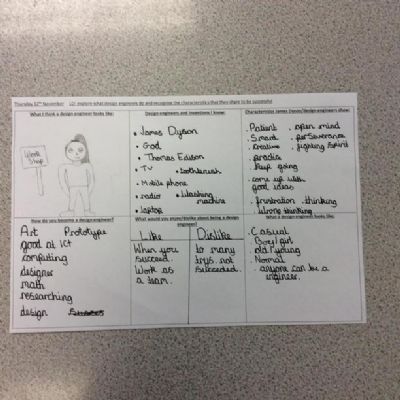 Thursday 12th November LO: explore what design engineers do and recognise the characteristics that they share to be successful
What I think a design engineer looks like:
Work
Shop
Design engineers and inventions I know:
James Dyson
God
Thomas Edison
TV
toothbrush
Mobile phone
radio
Washing
machine
laptop
Characteristics James Dyson/design engineers show:
Patient
open mind
Smart
perseverance
Creative
fighting spirit
practice
keep going
come up with
good ideas
frustration
thinking
wrong thinking
How do you become a design engineer?
Art Prototype
good at ICT
computing
designer
math
researching
design
What would you enjoy/dislike about being a design
engineer?
Like
When you
succeed.
Work as
a team.
Dislike
to many
trys not
succeeded.
What a design engineer looks like:
Casual
Boy/girl
old/young
Normal
anyone can be a
engineer.